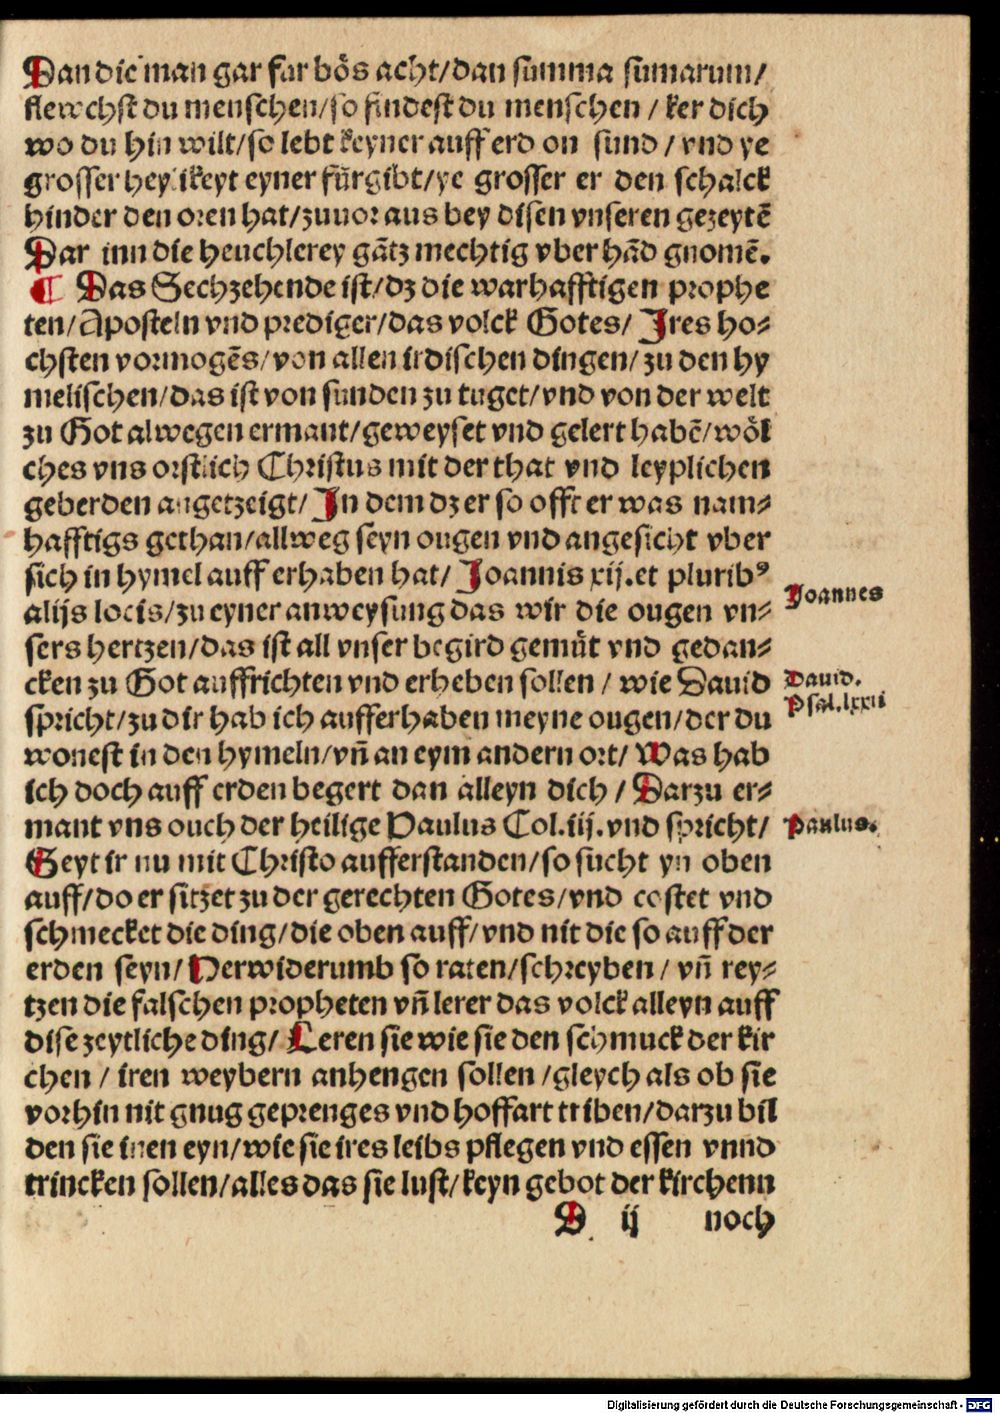 Dan die man gar fur bös acht/dan summa sumarum/
flewchst du menschen/so findest du menschen / ker dich
wo du hin wilt/so lebt keyner auff erd on sund / vnd ye
grosser heylikeyt eyner fürgibt/ye grosser er den schalck
hinder den oren hat/zuuor aus bey disen vnseren gezeytē
Dar inn die heuchlerey gātz mechtig vber hād gnomē.
¶ Das Sechzehende ist/dz die warhafftigen prophe
ten/Aposteln vnd prediger/das volck Gotes/ Ires ho⸗
chsten vormogēs/von allen irdischen dingen/zu den hy
melischen/das ist von sunden zu tuget/vnd von der welt
zu Got alwegen ermant/geweyset vnd gelert habē/wöl
ches vns orstlich Christus mit der that vnd leyplichen
geberden angetzeigt/ In dem dz er so offt er was nam⸗
hafftigs gethan/allweg seyn ougen vnd angesicht vber
sich in hymel auff erhaben hat/ Joannis xij.et pluribꝰ
alijs locis/zu eyner anweysung das wir die ougen vn⸗
sers hertzen/das ist all vnser begird gemüt vnd gedan⸗
cken zu Got auffrichten vnd erheben sollen / wie Dauid
spricht/zu dir hab ich aufferhaben meyne ougen/der du
wonest in den hymeln/vn̄ an eym andern ort/ Was hab
ich doch auff erden begert dan alleyn dich / Darzu er⸗
mant vns ouch der heilige Paulus Col.iij.vnd spricht/
Seyt ir nu mit Christo aufferstanden/so sucht yn oben
auff/do er sitzet zu der gerechten Gotes/vnd costet vnd
schmecket die ding/die oben auff/vnd nit die so auff der
erden seyn/ Herwiderumb so raten/schreyben / vn̄ rey⸗
tzen die falschen propheten vn̄ lerer das volck alleyn auff
dise zeytliche ding/ Leren sie wie sie den schmuck der kir
chen / iren weybern anhengen sollen /gleych als ob sie
vorhin nit gnug geprenges vnd hoffart triben/darzu bil
den sie inen eyn/wie sie ires leibs pflegen vnd essen vnnd
trincken sollen/alles das sie lust/keyn gebot der kirchenn
D ij noch
Joannes
Dauid.
Psal.lxxii
Paulus.
Digitalisierung gefördert durch die Deutsche Forschungsgemeinschaft - DFG